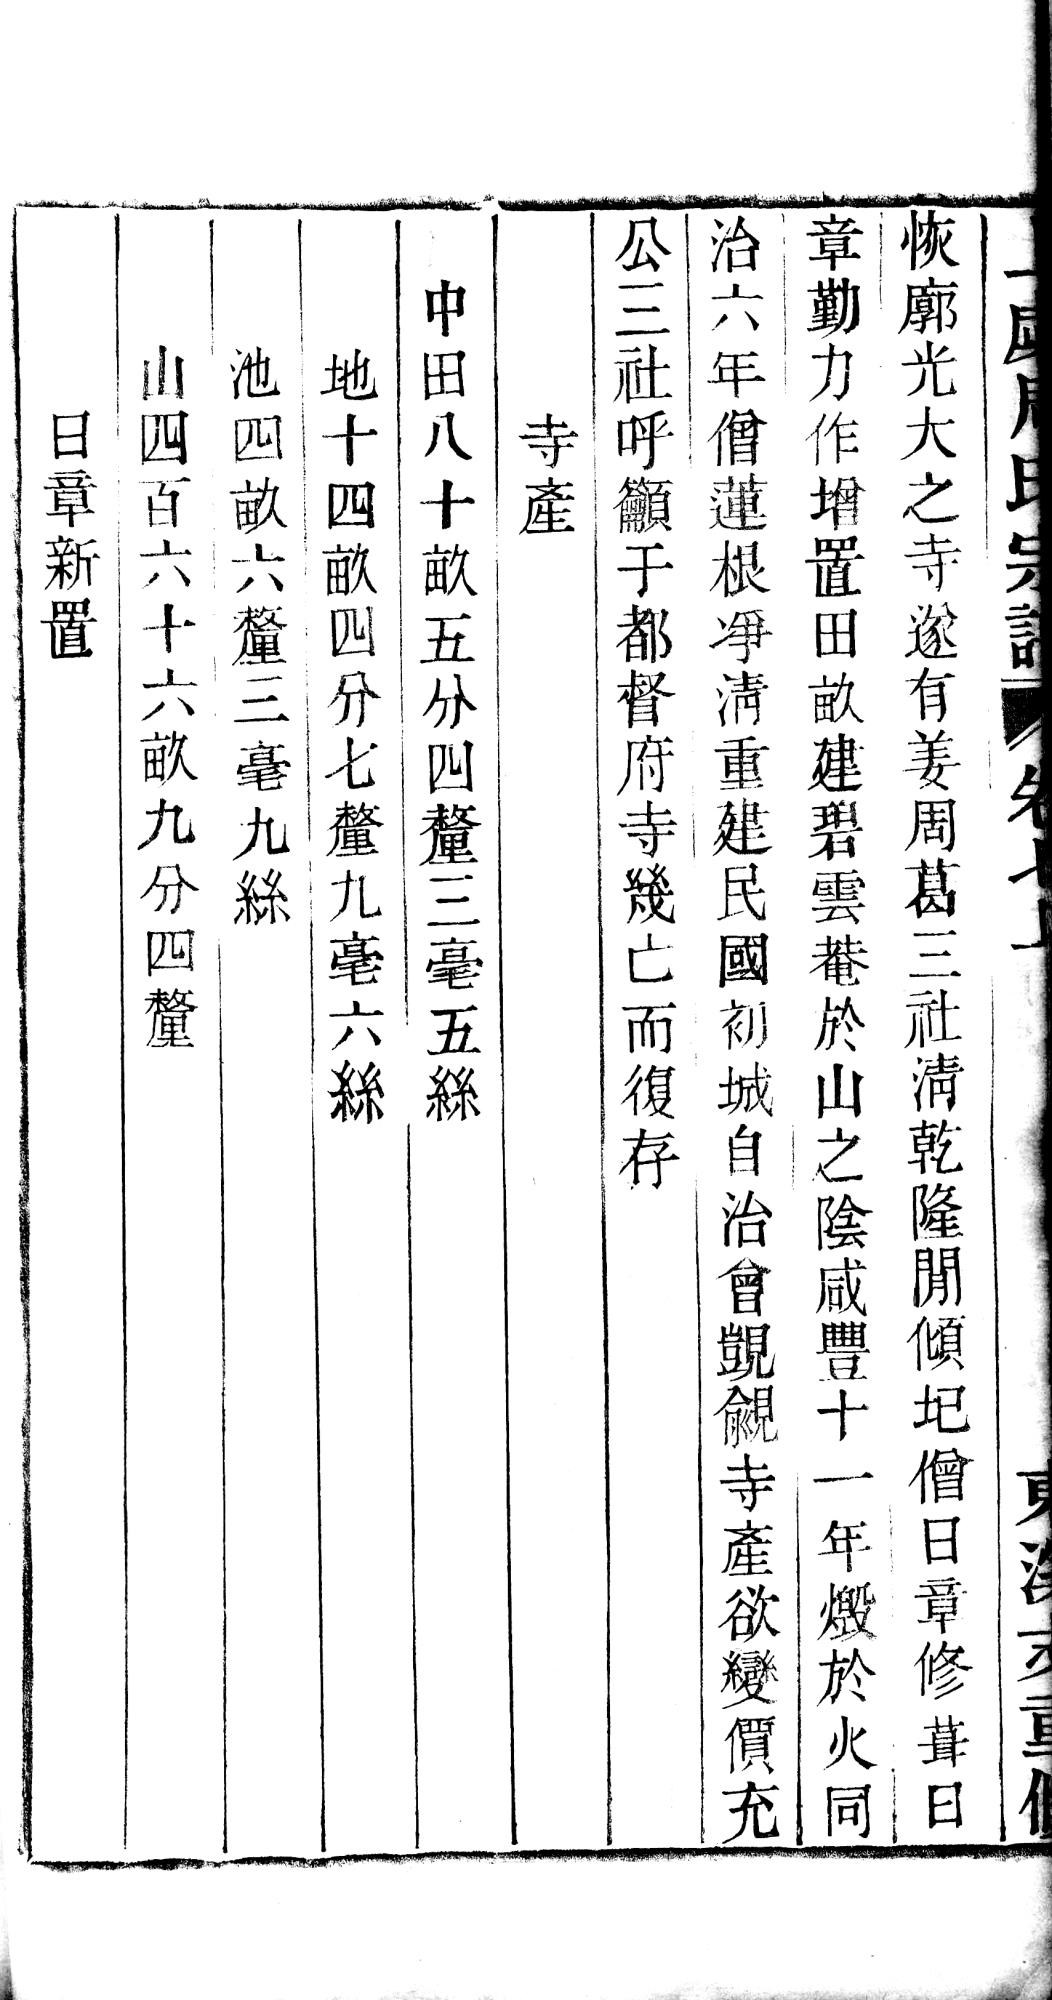 周氏宗譜 卷七
重修
恢廓光大之寺遂有姜周葛三社淸乾隆閒傾圮僧日章修葺日
章勤力作增置田畝建碧雲菴於山之陰咸豐十一年燬於火同
治六年僧蓮根淨淸重建民國初城自治會覬覦寺產欲變價充
公三社呼籲于都督府寺幾亡而復存
寺產
中田八十畝五分四釐三毫五絲
地十四畝四分七釐九毫六絲
池四畝六釐三毫九絲
山四百六十六畝九分四釐
日章新置